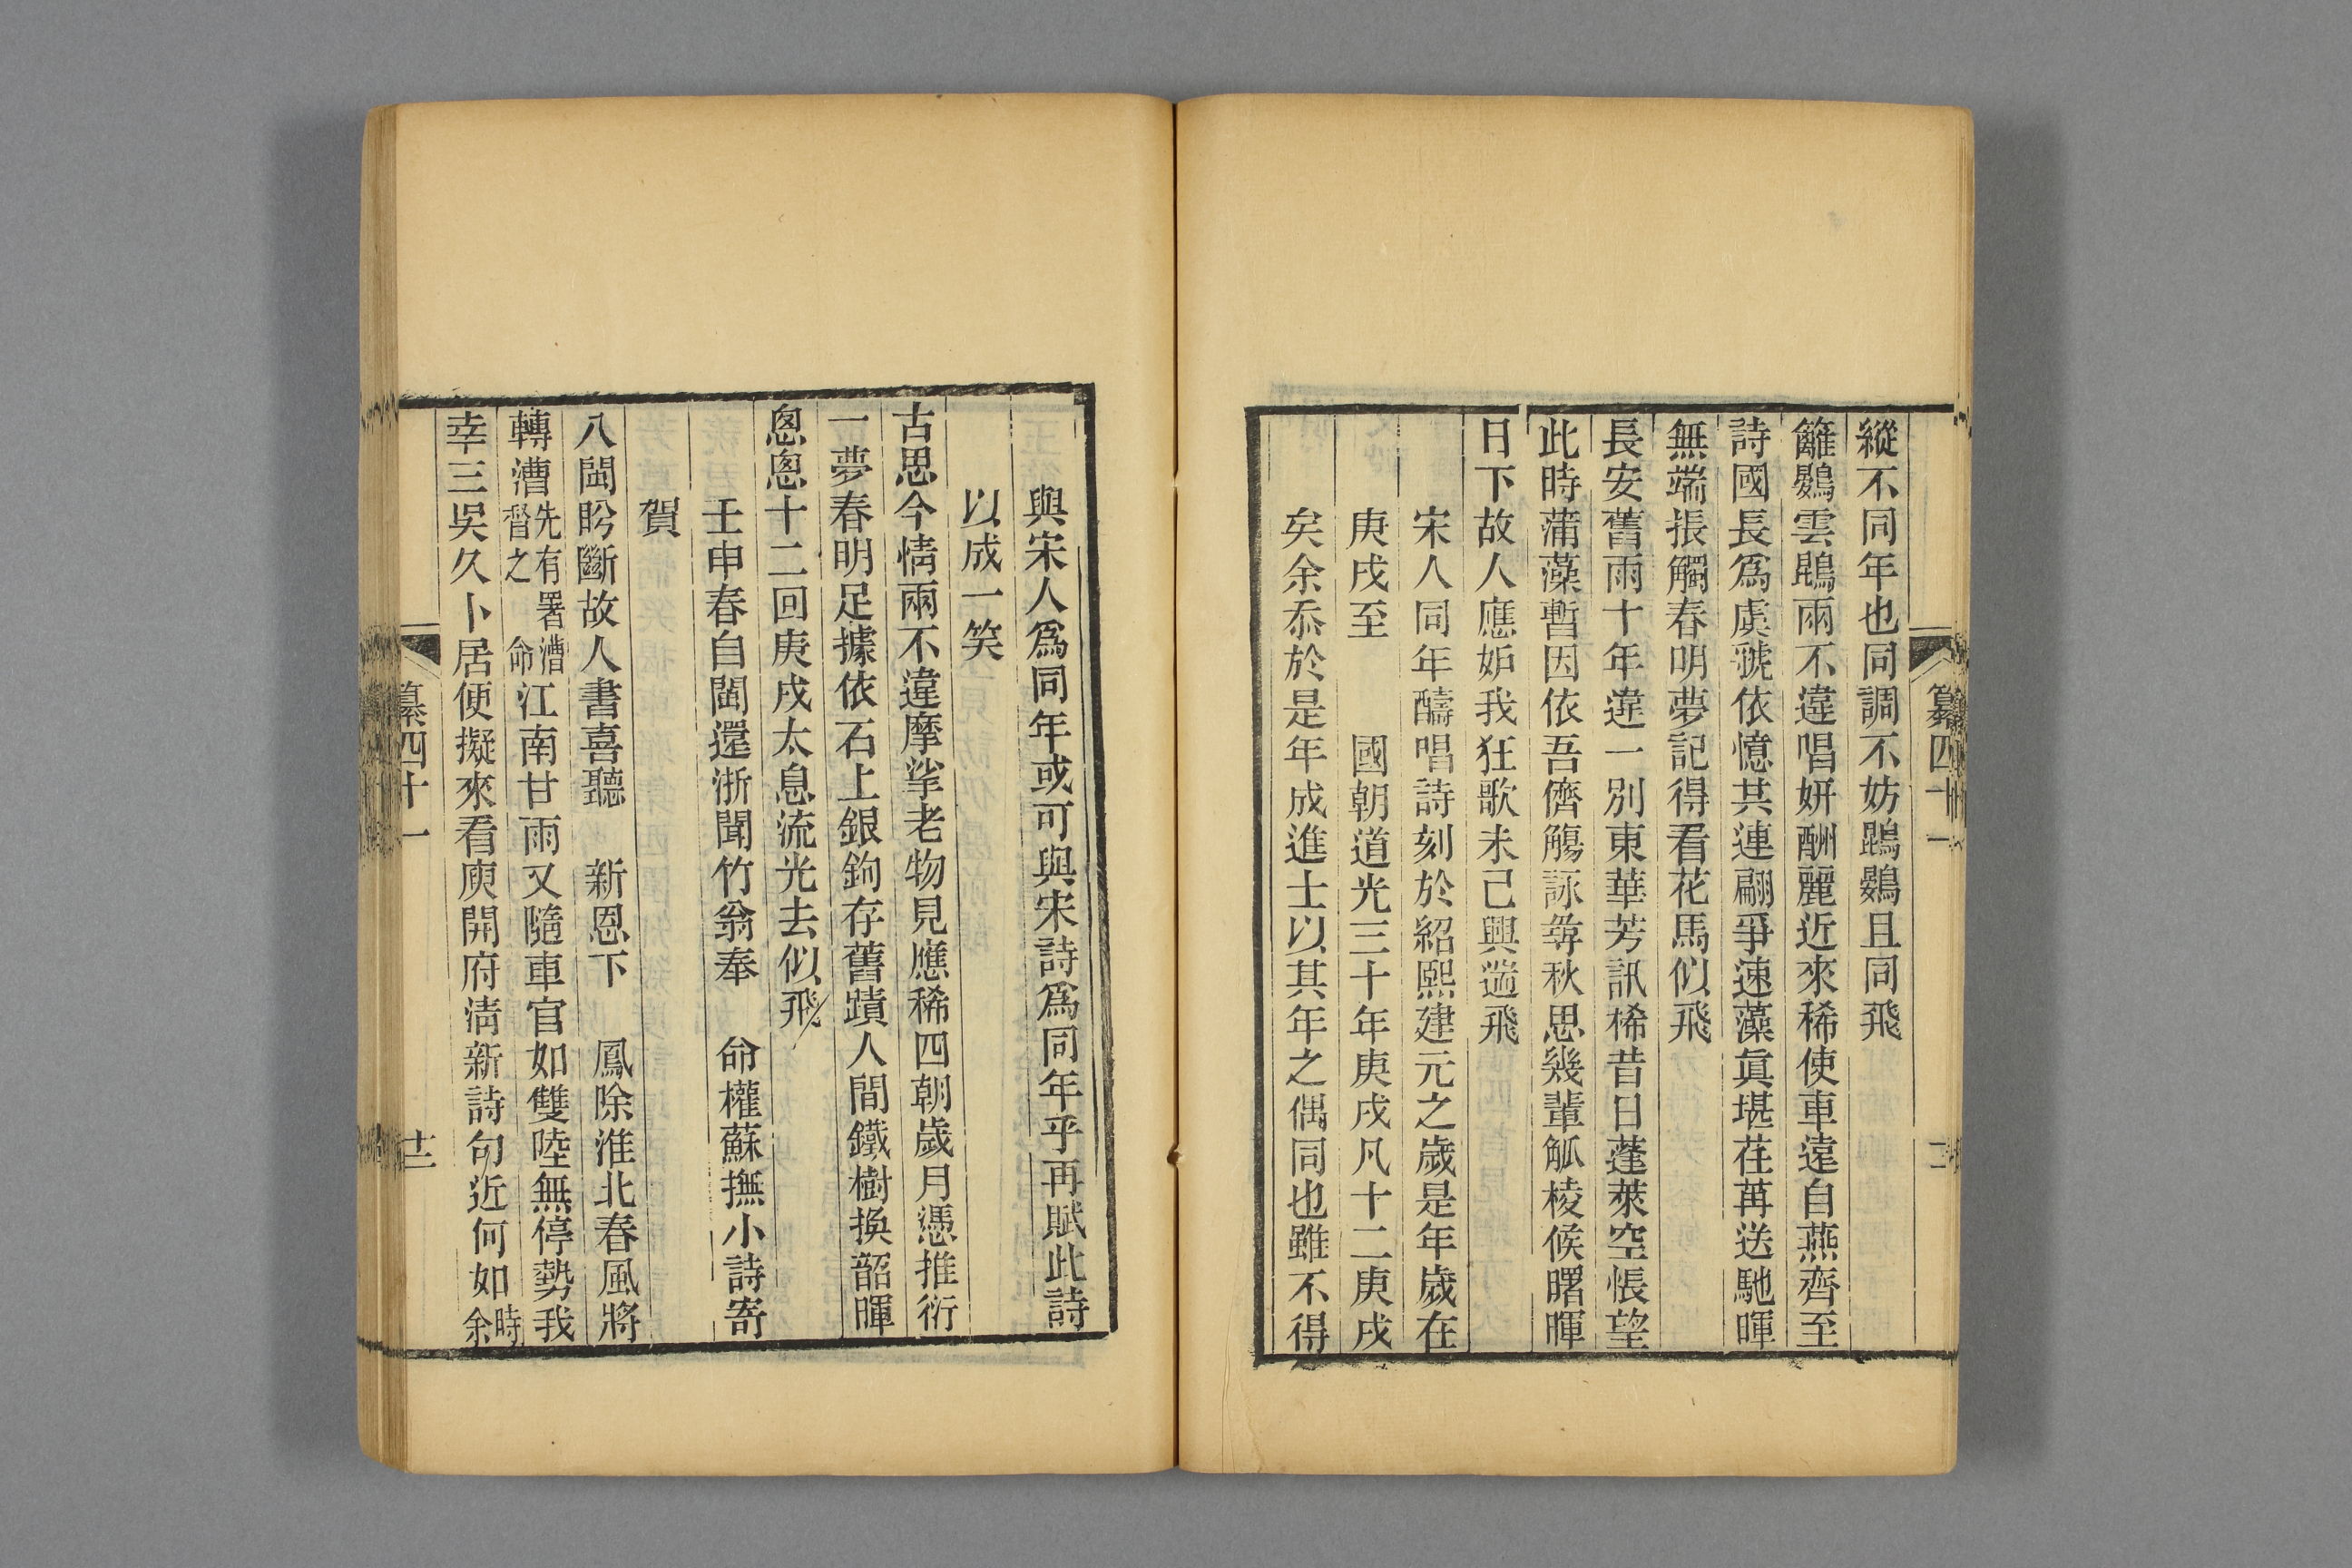 纂四十一
縱不同年也同調不妨鵾鷃且同飛
籬鷃雲鵾兩不違唱妍酬麗近來稀使車遠自燕齊至
詩國長爲虞虢依憶其連翩爭速藻眞堪荏苒送馳暉
無端掁觸春明夢記得看花馬似飛
長安舊雨十年違一別東華芳訊稀昔日蓬萊空悵望
此時蒲藻暫因依吾儕觴詠夸秋思幾輩觚棱候曙暉
日下故人應妒我狂歌未已興遄飛
宋人同年醻唱詩刻於紹熙建元之歲是年歲在
庚戌至　國朝道光三十年庚戌凡十二庚戌
矣余忝於是年成進士以其年之偶同也雖不得
與宋人爲同年或可與宋詩爲同年乎再賦此詩
以成一笑
古思今情兩不違摩挲老物見應稀四朝歲月憑推衍
一夢春明足據依石上銀鉤存舊蹟人間鐵樹換韶暉
悤悤十二回庚戌太息流光去似飛
壬申春自閩還浙聞竹翁奉　命權蘇撫小詩寄
賀
八閩盻斷故人書喜聽　新恩下　鳳除淮北春風將
轉漕先有署漕督之　命江南甘雨又隨車官如雙陸無停勢我
幸三吳久卜居便擬來看庾開府清新詩句近何如時余
纂四十一
十二